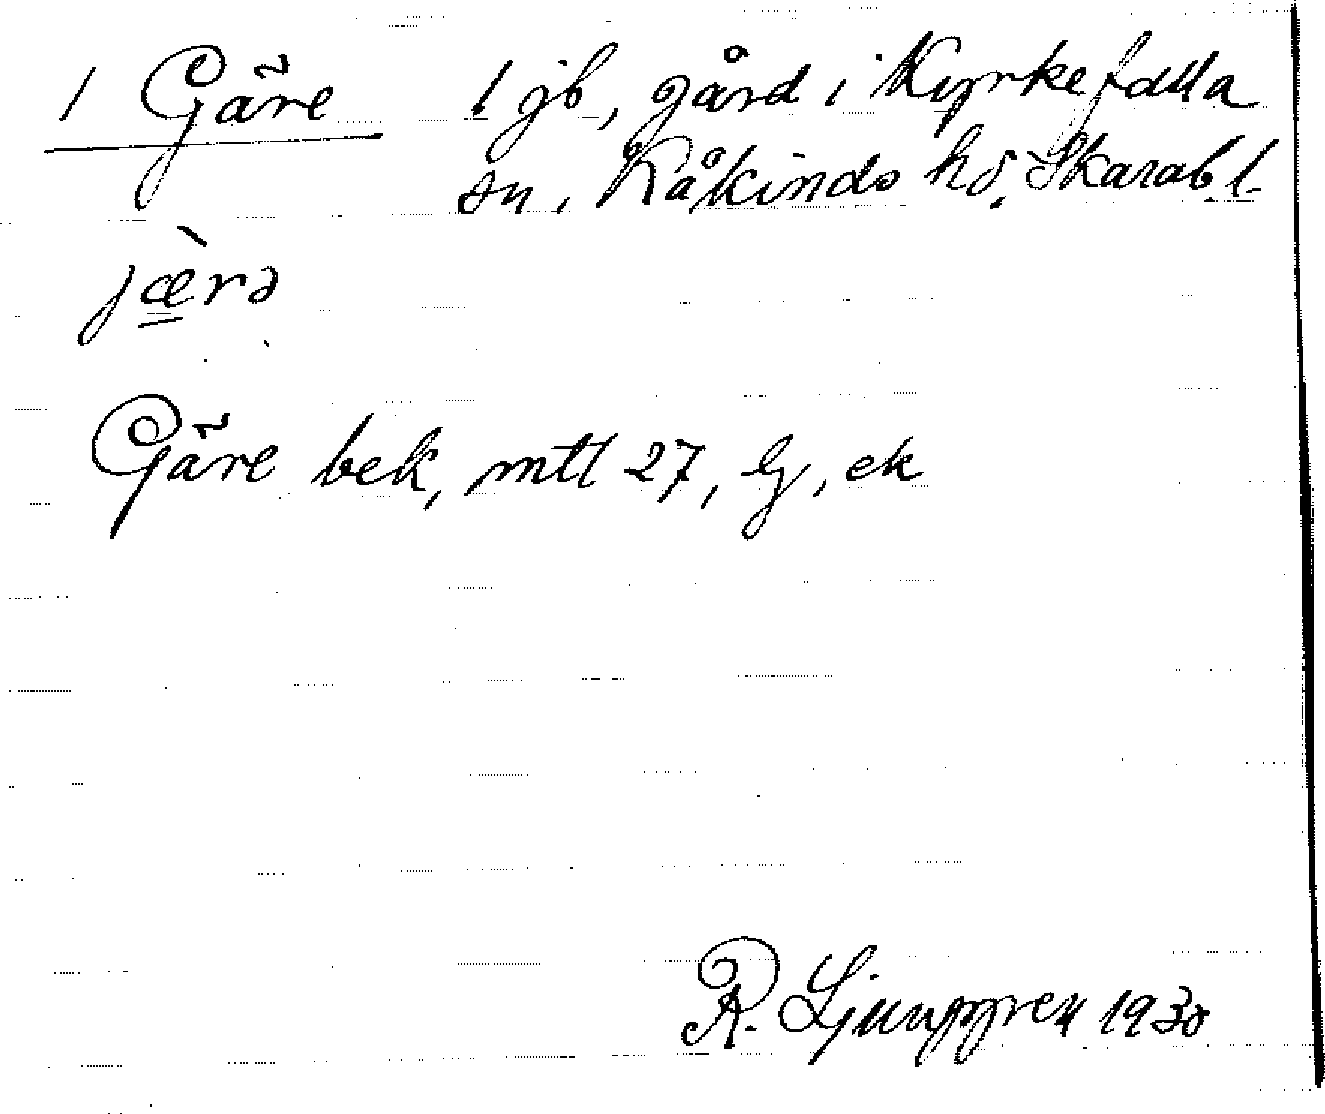 1 Gäre 1 jb, gård i Kyrkefalla
sn, Kåkinds hd, Skarab l.
jæ̀rə
Gäre bek, mtl 27, lg, ek
R. Ljunggren 1930